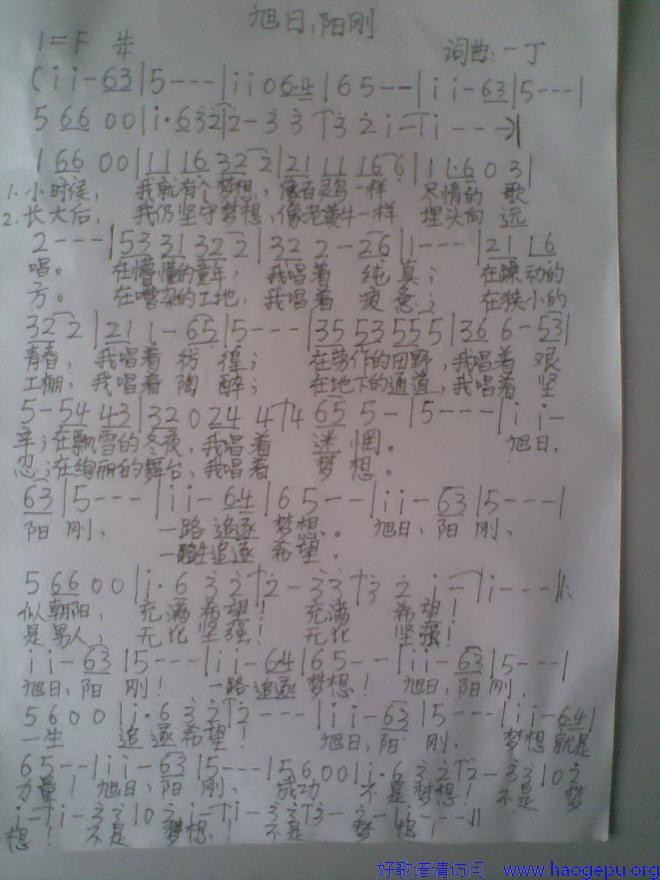 旭日,阳刚
1=F 4/4 词曲:一丁
(i i - 63 | 5 - - - | i i 0 64 | 6 5 - - | i i - 63 | 5 - - - |
5 66 0 0 | i· 632 | 2 - 3 3 | 3 2 i - | i - - -) |
1 66 0 0 | 11 16 32 2 | 21 11 16 6 | 1 1·6 0 3 |
1. 小时候, 我就有个梦想,像百灵鸟一样 尽情的 歌
2. 长大后, 我仍坚守梦想,像老黄牛一样 埋头向 远
2 - - - | 53 31 32 2 | 32 2 - 26 | 1 - - - | 21 16
唱。 在懵懂的童年, 我唱着 纯真; 在躁动的
方。 在嘈杂的工地, 我唱着 疲惫; 在狭小的
32 2 | 21 1 - 65 | 5 - - - | 35 53 55 5 | 36 6 - 53 |
青春, 我唱着 彷徨; 在劳作的田野,我唱着 艰
工棚, 我唱着 陶醉; 在地下的通道,我唱着 坚
5 - 54 43 | 32 0 24 4 | 4 65 5 - | 5 - - - | i i -
辛;在飘雪的冬夜,我唱着 迷惘。 旭日,
忍;在绚丽的舞台,我唱着 梦想。
63 | 5 - - - | i i - 64 | 6 5 - - | i i - 63 | 5 - - - |
阳刚, 一路追逐梦想。 旭日,阳刚,
一路追逐希望.
5 66 0 0 | i· 6 3 2 | 2 - 33 | 3 2 i - | i - - - :|
似朝阳, 充满希望! 充满 希望!
是男人, 无比坚强! 无比 坚强!
i i - 63 | 5 - - - | i i - 64 | 6 5 - - | i i - 63 | 5 - - - |
旭日,阳刚! 一路追逐梦想! 旭日,阳刚,
5 6 0 0 | i· 6 3 2 | 2 - - - | i i - 63 | 5 - - - | i i - 64 |
一生 追逐希望! 旭日,阳刚, 梦想就是
6 5 - - | i i - 63 | 5 - - - | 5 6 0 0 | i· 6 3 2 | 2 - 33 | 0 2
力量! 旭日,阳刚, 成功 不是梦想! 不是 梦
i - | i - 33 | 0 2 i - | i - 33 | 3 - 2 - | i - - - ||
想! 不是 梦想! 不是 梦 想!
好歌谱请访问 www.haogepu.org